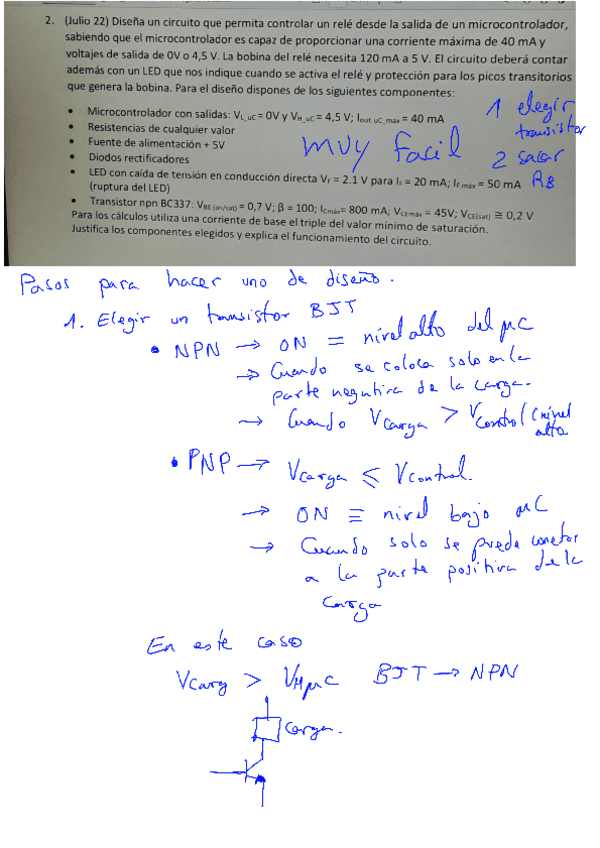 2. (Julio 22) Diseña un circuito que permita controlar un relé desde la salida de un microcontrolador,
sabiendo que el microcontrolador es capaz de proporcionar una corriente máxima de 40 mA y
voltajes de salida de 0V o 4,5 V. La bobina del relé necesita 120 mA a 5 V. El circuito deberá contar
además con un LED que nos indique cuando se activa el relé y protección para los picos transitorios
que genera la bobina. Para el diseño dispones de los siguientes componentes:
• Microcontrolador con salidas: VL_uC = 0V y VH_uC = 4,5 V; Iout uC_max = 40 mA
• Resistencias de cualquier valor
• Fuente de alimentación + 5V
• Diodos rectificadores
• LED con caída de tensión en conducción directa VF = 2.1 V para IF = 20 mA; IF máx = 50 mA
(ruptura del LED)
• Transistor npn BC337: VBE (on/sat) = 0,7 V; β = 100; ICmáx = 800 mA; VCEmáx = 45V; VCE(sat) ≅ 0,2 V
Para los cálculos utiliza una corriente de base el triple del valor mínimo de saturación.
Justifica los componentes elegidos y explica el funcionamiento del circuito.
muy facil
1 elegir
transistor
2 sacar
RB
Pasos para hacer uno de diseño.
1. Elegir un transistor BJT
• NPN → ON = nivel alto del μC
→ Cuando se coloca solo en la
parte negativa de la carga.
→ Cuando Vcarga > Vcontrol (nivel
alto
• PNP → Vcarga ≤ Vcontrol.
→ ON ≡ nivel bajo μC
→ Cuando solo se puede conectar
a la parte positiva de la
carga
En este caso
Vcarg > VHμC BJT → NPN
Carga.